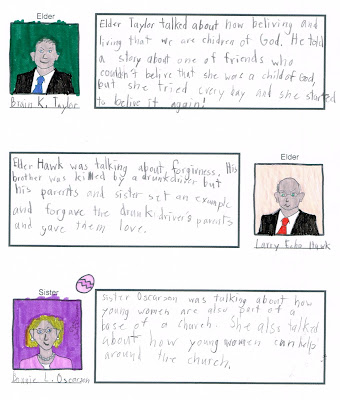 Elder
Brain K. Taylor
Elder Taylor talked about how beliving and
living that we are chidren of God. He told
a story about one of friends who
couldn't belive that she was a child of God,
but she tried every day and she started
to belive it again!
Elder Hawk was talking about forgivness. His
brother was killed by a drunk driver but
his parents and sister set an example
and forgave the drunk driver's parents
and gave them love.
Elder
Larry Echo Hawk
Sister
Bonnie L. Oscarson
Sister Oscarson was talking about how
young women are also part of a
base of a church. She also talked
about how young women can help
around the church.